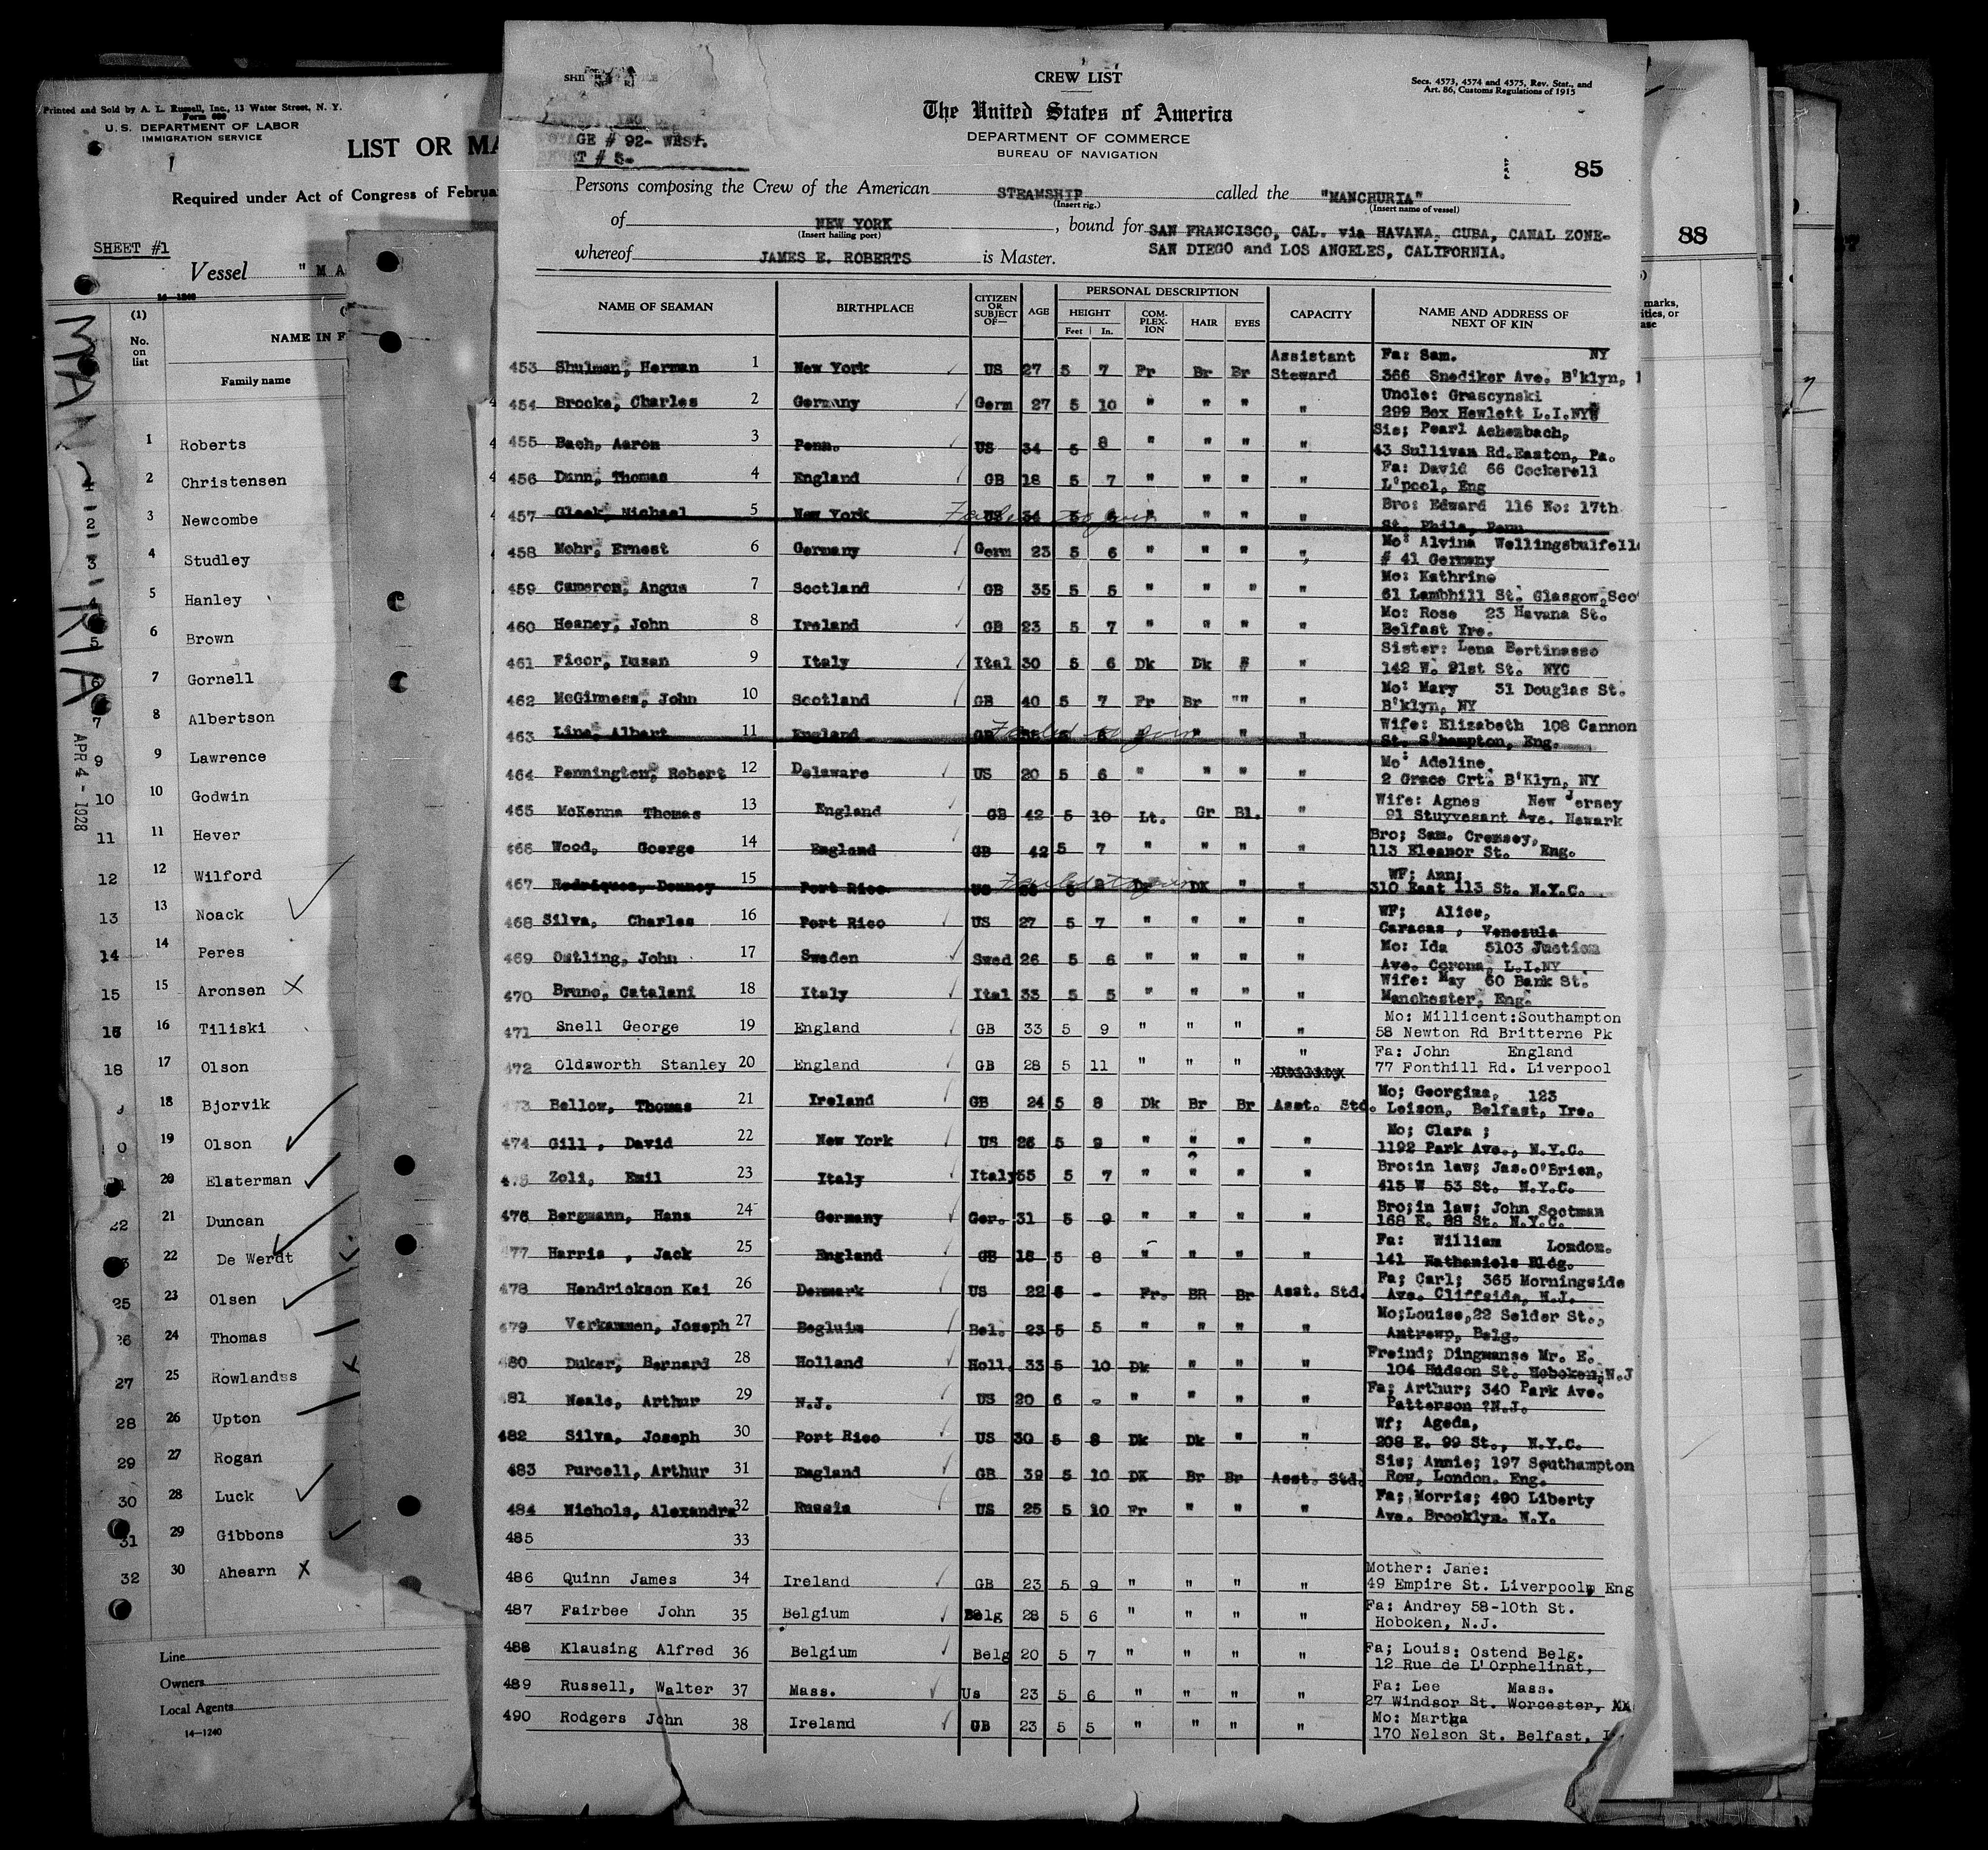 Printed and Sold by A. L. Russell, Inc., 13 Water Street, N. Y.
Form 680
U. S. DEPARTMENT OF LABOR
IMMIGRATION SERVICE
LIST OR MA
Required under Act of Congress of Februa
SHEET #1
Vessel "MA
14—1240
(1)
No. on list
NAME IN F
Family name
MANCHURIA
APR 4 - 1928
1 Roberts
2 Christensen
3 Newcombe
4 Studley
5 Hanley
6 Brown
7 Gornell
8 Albertson
9 Lawrence
10 Godwin
11 Hever
12 Wilford
13 Noack
14 Peres
15 Aronsen X
16 Tiliski
17 Olson
18 Bjorvik
19 Olson
20 Elsterman
21 Duncan
22 De Werdt
23 Olsen
24 Thomas
25 Rowlandss
26 Upton
27 Rogan
28 Luck
29 Gibbons
30 Ahearn X
Line
Owners
Local Agents
14—1240
CREW LIST
Secs. 4573, 4574 and 4575, Rev. Stat., and
Art. 86, Customs Regulations of 1915
The United States of America
DEPARTMENT OF COMMERCE
BUREAU OF NAVIGATION
# 92- WEST.
# 5-
85
88
Persons composing the Crew of the American STEAMSHIP called the "MANCHURIA"
(Insert rig.) (Insert name of vessel)
of NEW YORK, bound for SAN FRANCISCO, CAL. via HAVANA, CUBA, CANAL ZONE-
(Insert hailing port)
whereof JAMES E. ROBERTS is Master. SAN DIEGO and LOS ANGELES, CALIFORNIA.
NAME OF SEAMAN BIRTHPLACE CITIZEN OR SUBJECT OF— AGE PERSONAL DESCRIPTION CAPACITY NAME AND ADDRESS OF NEXT OF KIN
HEIGHT COM-PLEX-ION HAIR EYES
Feet In.
453 Shulman, Herman 1 New York US 27 5 7 Fr Br Br Assistant Steward Fa: Sam. NY
366 Snediker Ave. B'klyn,
454 Brocke, Charles 2 Germany Germ 27 5 10 " " " " Uncle: Grascynski
299 Box Hewlett L.I.NY
455 Bach, Aaron 3 Penn. US 34 5 8 " " " " Sis; Pearl Achenbach,
43 Sullivan Rd.Easton, Pa.
456 Dunn, Thomas 4 England GB 18 5 7 " " " " Fa: David 66 Cockerell
L'pool, Eng
457 Gleek, Michael 5 New York US 34 5 Failed to join " " " Bro: Edward 116 No: 17th
St. Phila, Penn
458 Mohr, Ernest 6 Germany Germ 23 5 6 " " " " Mo: Alvina Wellingsbulfell
# 41 Germany
459 Cameron, Angus 7 Scotland GB 35 5 5 " " " " Mo: Kathrine
61 Lambhill St. Glasgow,Sco
460 Heaney, John 8 Ireland GB 23 5 7 " " " " Mo: Rose 23 Havana St.
Belfast Ire.
461 Ficor, Dusan 9 Italy Ital 30 5 6 Dk Dk " " Sister: Lena Bertinasso
142 W. 21st St. NYC
462 McGinness, John 10 Scotland GB 40 5 7 Fr Br "" " Mo: Mary 31 Douglas St.
B'klyn, NY
463 Line, Albert 11 England GB Failed to join " " " Wife: Elizabeth 108 Cannon
St. S'hampton, Eng.
464 Pennington, Robert 12 Delaware US 20 5 6 " " " " Mo: Adeline
2 Grace Crt. B'Klyn, NY
465 McKenna Thomas 13 England GB 42 5 10 Lt. Gr Bl. " Wife: Agnes New Jersey
91 Stuyvesant Ave. Newark
466 Wood, Goerge 14 England GB 42 5 7 " " " " Bro; Sam. Cremsey,
113 Eleanor St. Eng.
467 Rodriques, Denney 15 Port Rico US Failed to join DK " " WF; Ann;
310 East 113 St. N.Y.C.
468 Silva, Charles 16 Port Rico US 27 5 7 " " " " WF; Alice,
Caracas , Venesula
469 Ostling, John 17 Sweden Swed 26 5 6 " " " " Mo: Ida 5103 Justice
Ave. Corona, L.I.NY
470 Bruno, Catalani 18 Italy Ital 33 5 5 " " " " Wife: May 60 Bank St.
Manchester, Eng.
471 Snell George 19 England GB 33 5 9 " " " " Mo: Millicent:Southampton
58 Newton Rd Britterne Pk
472 Oldsworth Stanley 20 England GB 28 5 11 " " " " Fa: John England
77 Fonthill Rd. Liverpool
473 Bellow, Thomas 21 Ireland GB 24 5 8 Dk Br Br Asst. Std. Mo; Georgina, 123
Leison, Belfast, Ire.
474 Gill , David 22 New York US 26 5 9 " " " " Mo; Clara ;
1192 Park Ave., N.Y.C.
475 Zoli, Emil 23 Italy Italy 55 5 7 " " " " Bro:in law; Jas.O'Brien,
415 W 53 St. N.Y.C.
476 Bergmann, Hans 24 Germany Ger. 31 5 9 " " " " Bro;in law; John Sootman
168 E. 88 St. N.Y.C.
477 Harris , Jack 25 England GB 18 5 8 " " " " Fa: William London.
141 Nathaniels Bldg.
478 Hendrickson Kai 26 Denmark US 22 6 - Fr. BR Br Asst. Std. Fa; Carl; 365 Morningside
Ave. Cliffside, N.J.
479 Verkammen, Joseph 27 Begluim Bel. 23 5 5 " " " " Mo;Louise,22 Selder St.,
Antrewp, Belg.
480 Duker, Bernard 28 Holland Holl. 33 5 10 Dk " " " Freind; Dingmanse Mr. E.
104 Hudson St. Hoboken,N.J
481 Neale, Arthur 29 N.J. US 20 6 - " " " " Fa; Arthur; 340 Park Ave.
Patterson ?N.J.
482 Silva, Joseph 30 Port Rico US 30 5 8 Dk Dk " " Wf; Ageda,
208 E. 99 St., N.Y.C.
483 Purcell, Arthur 31 England GB 39 5 10 DK Br Br Asst. Std. Sis; Annie; 197 Southampton
Row, London. Eng.
484 Nichols, Alexandra 32 Russia US 25 5 10 Fr " " " Fa; Morris; 490 Liberty
Ave. Brooklyn. N.Y.
485 33
486 Quinn James 34 Ireland GB 23 5 9 " " " " Mother: Jane:
49 Empire St. Liverpool, Eng
487 Fairbee John 35 Belgium Belg 28 5 6 " " " " Fa: Andrey 58-10th St.
Hoboken, N.J.
488 Klausing Alfred 36 Belgium Belg 20 5 7 " " " " Fa; Louis: Ostend Belg.
12 Rue de L'Orphelinat,
489 Russell, Walter 37 Mass. Us 23 5 6 " " " " Fa: Lee Mass.
27 Windsor St. Worcester,
490 Rodgers John 38 Ireland GB 23 5 5 " " " " Mo: Martha
170 Nelson St. Belfast,